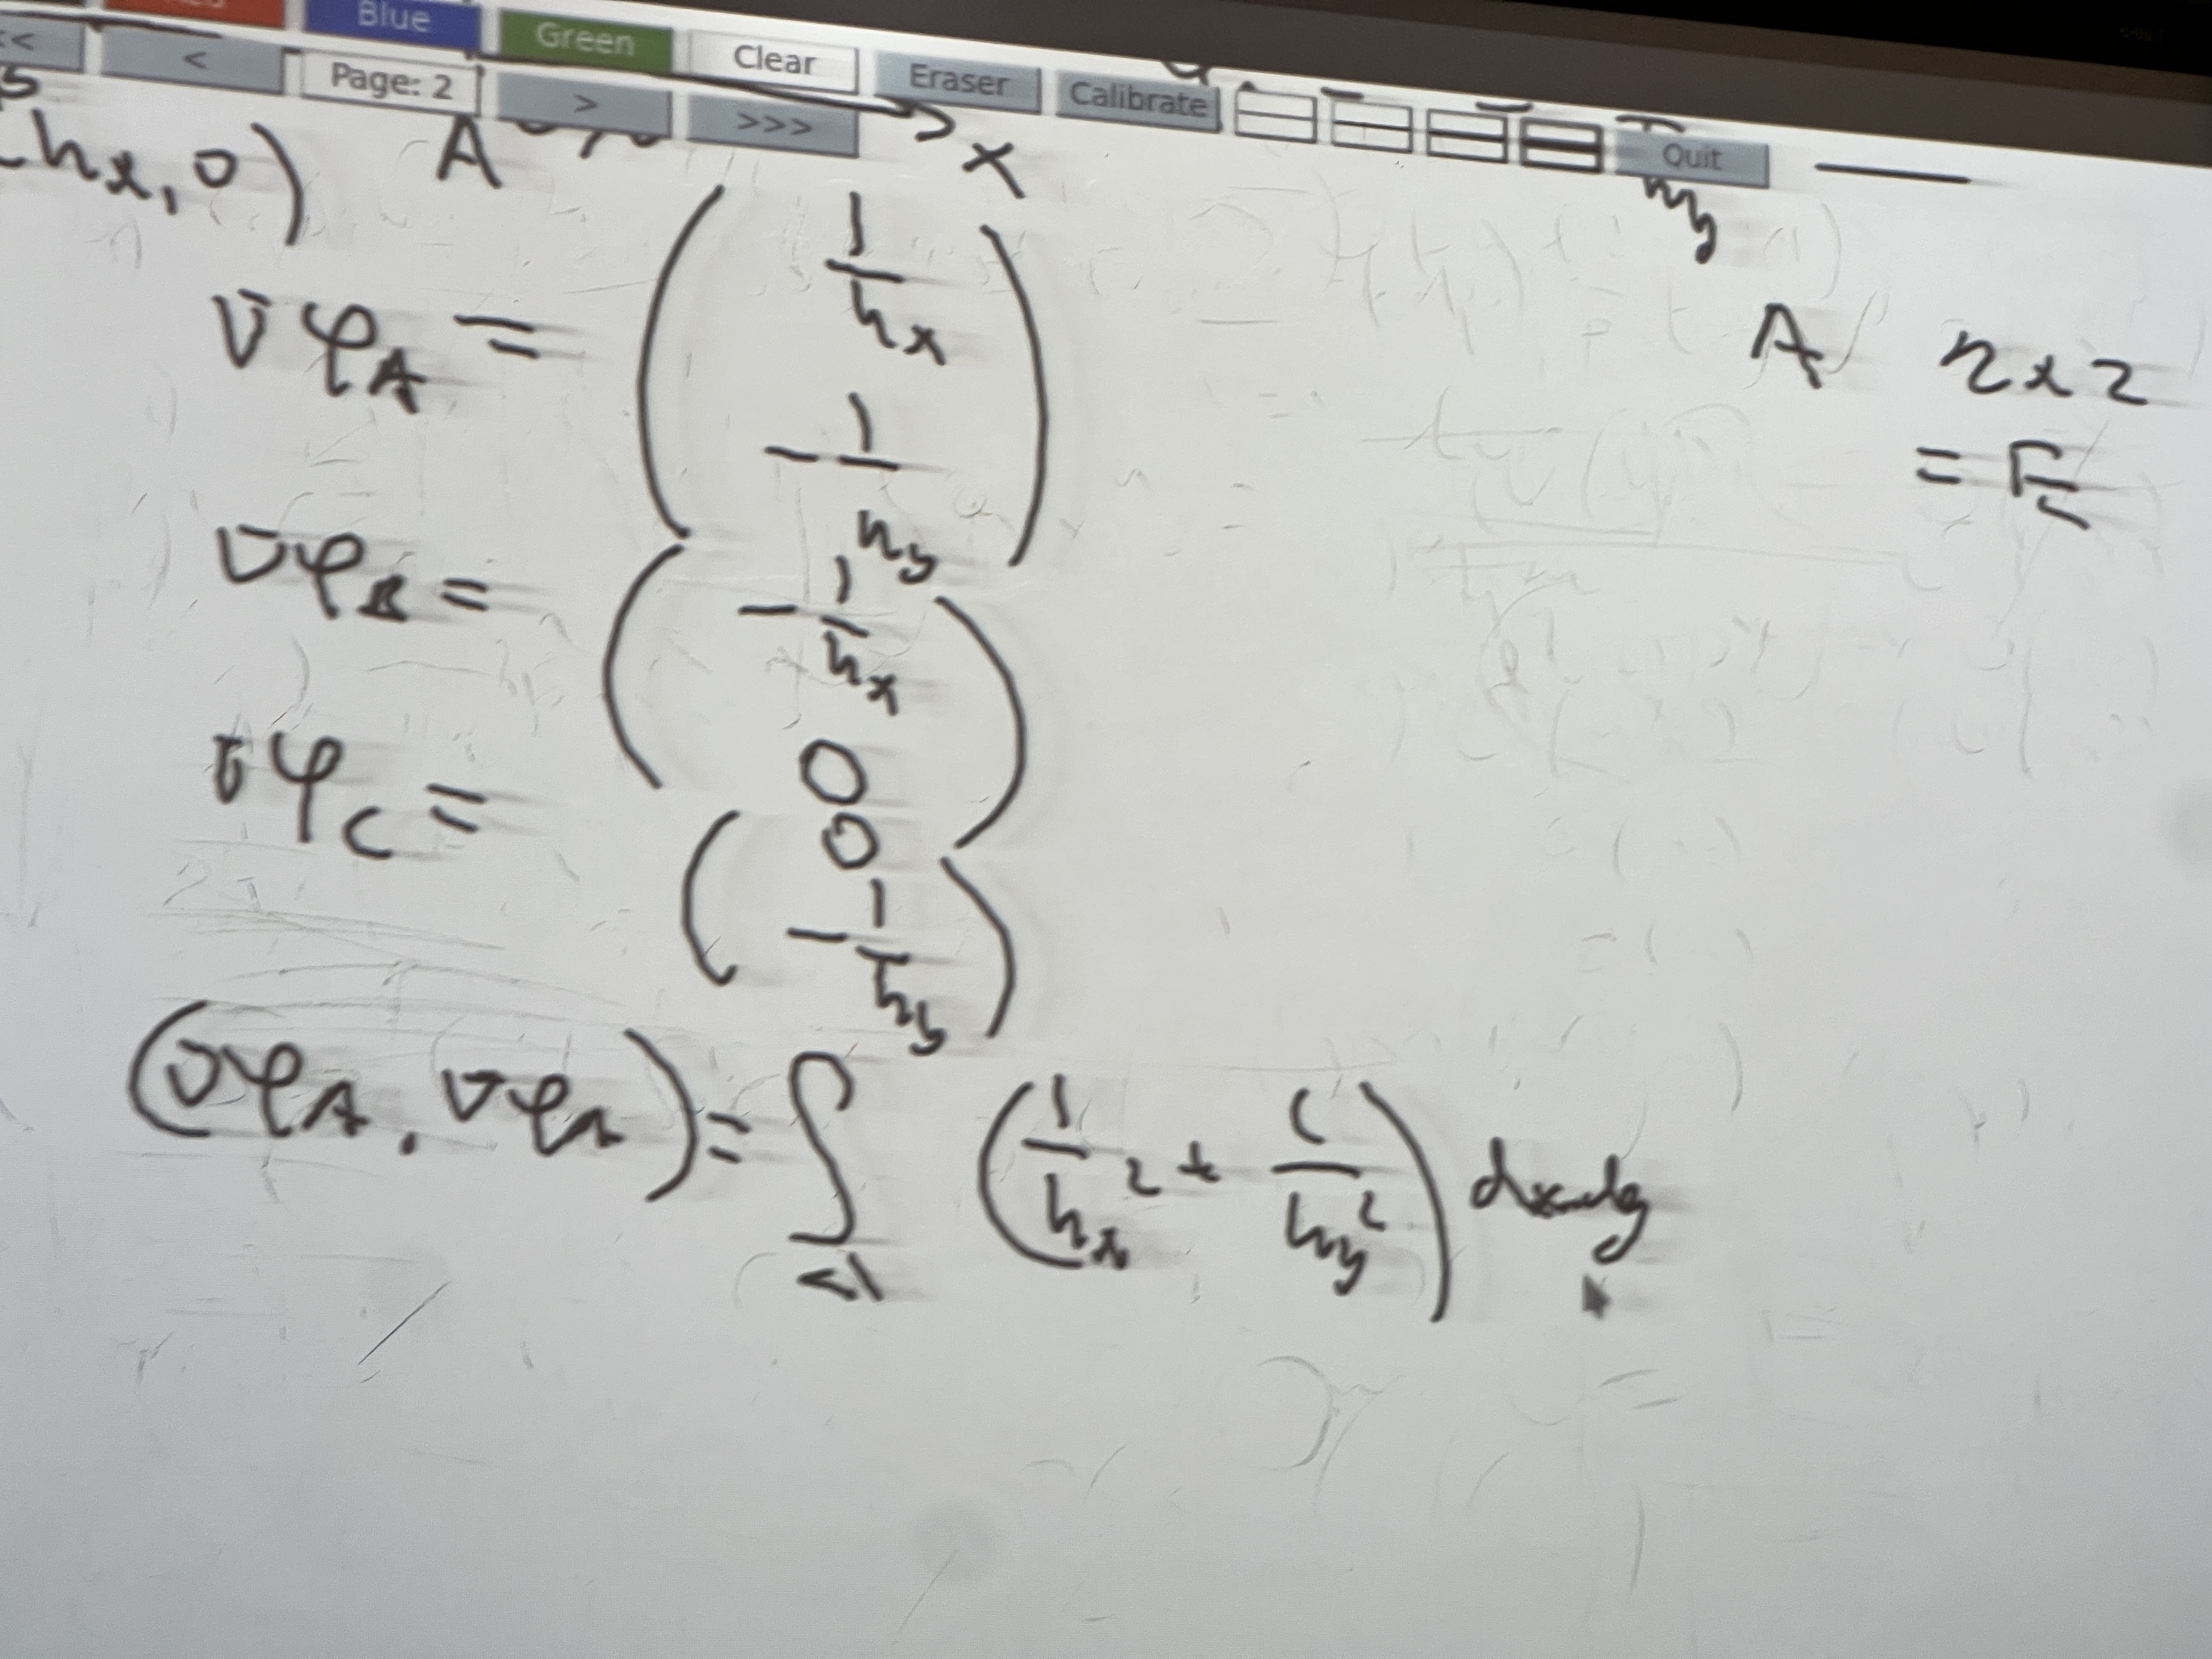 Blue Green Clear Eraser Calibrate
<< < Page: 2 > >>> Quit
-hx, 0) A x
hy
∇φA = ( 1/hx
- 1/hy )
A nxz
= F
∇φB = ( - 1/hx
0 )
∇φC = ( 0
- 1/hy )
(∇φA, ∇φA) = ∫ ( 1/hx² + 1/hy² ) dxdy